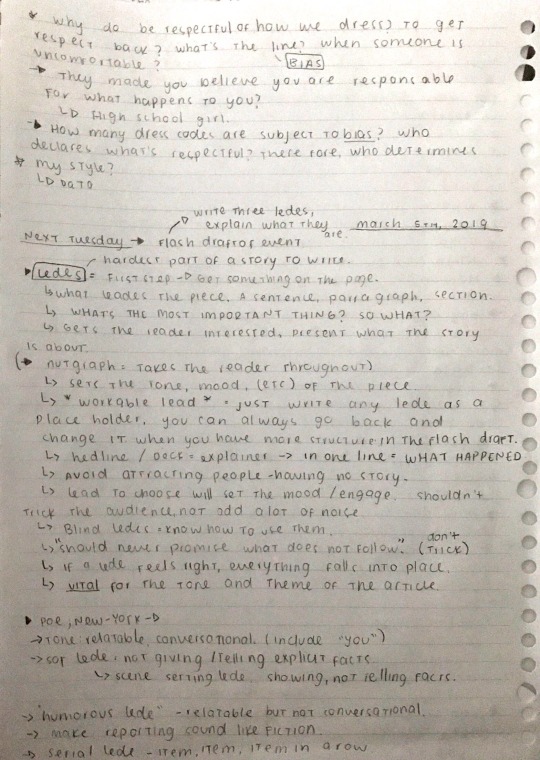 * why do be respectful of how we dress? to get
respect back? what's the line? when someone is
uncomfortable? BIAS
→ They made you believe you are responsable
for what happens to you?
↳ High school girl.
→ How many dress codes are subject to bias? who
declares what's respectful? there fore, who determines
* my style?
↳ DATA
write three ledes,
explain what they are. march 5TH, 2019
NEXT TUESDAY → flash draft of event
hardest part of a story to write.
▸ ledes = FIRST STEP → Get something on the page.
↳ what leades the piece. A sentence, parragraph, section.
↳ WHAT'S THE MOST IMPORTANT THING? SO WHAT?
↳ Gets the reader interested, present what the story
is about.
(→ nutgraph = takes the reader throughout)
↳ sets the tone, mood, (etc) of the piece
↳ "workable lead" = just write any lede as a
place holder, you can always go back and
change it when you have more structure in the flash draft.
↳ hedline / deck = explainer → in one line = WHAT HAPPENED
↳ Avoid attracting people - having no story.
↳ lead to choose will set the mood / engage, shouldn't
trick the audience, not add alot of noise.
↳ Blind ledes = know how to use them.
↳ "should never promise what does not follow". (don't trick)
↳ if a lede feels right, everything falls into place.
↳ vital for the tone and theme of the article.
▸ POE, NEW-YORK →
→ Tone: relatable, conversational. (include "you")
→ sof lede: not giving / telling explicit facts
↳ scene setting lede, showing, not telling facts.
→ "humorous lede" - relatable but not conversational.
→ make reporting sound like fiction.
→ serial lede - item, item, item in a row